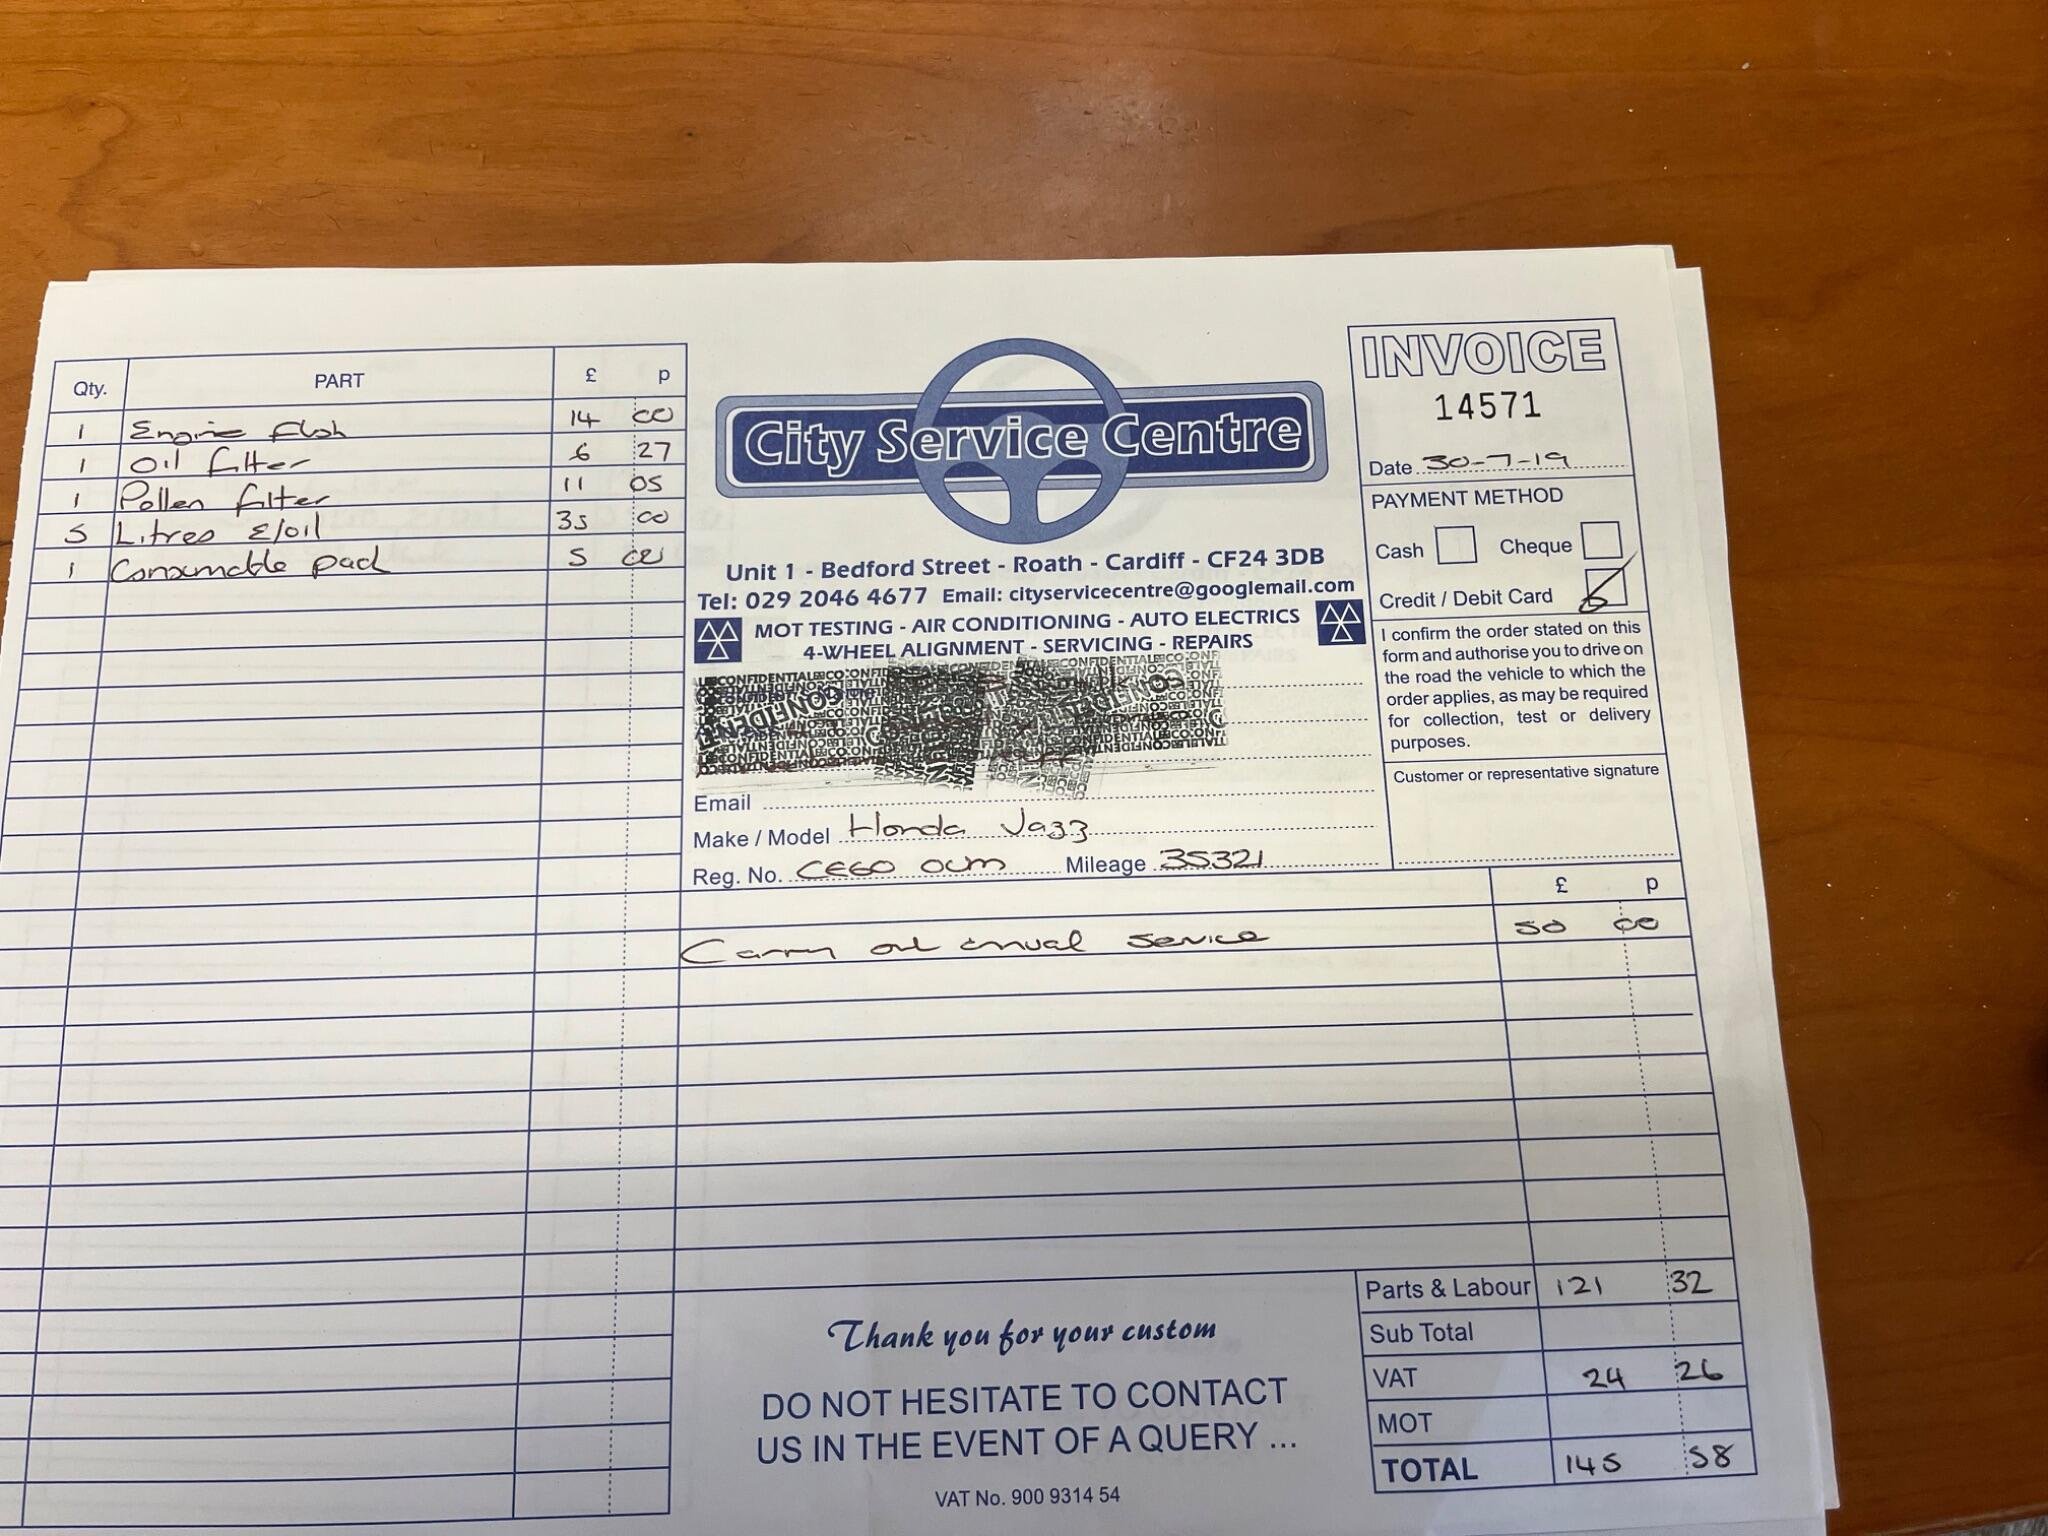 Qty. PART £ p
1 Engine flsh 14 00
1 Oil filter 6 27
1 Pollen filter 11 05
5 Litres E/oil 35 00
1 Consumable pack 5 00
City Service Centre
Unit 1 - Bedford Street - Roath - Cardiff - CF24 3DB
Tel: 029 2046 4677 Email: cityservicecentre@googlemail.com
MOT TESTING - AIR CONDITIONING - AUTO ELECTRICS
4-WHEEL ALIGNMENT - SERVICING - REPAIRS
CONFIDENTIAL
Email
Make / Model Honda Jazz
Reg. No. CE60 OUM Mileage 35321
INVOICE
14571
Date 30-7-19
PAYMENT METHOD
Cash Cheque
Credit / Debit Card
I confirm the order stated on this
form and authorise you to drive on
the road the vehicle to which the
order applies, as may be required
for collection, test or delivery
purposes.
Customer or representative signature
£ p
Carry out annual service 50 00
Thank you for your custom
DO NOT HESITATE TO CONTACT
US IN THE EVENT OF A QUERY ...
VAT No. 900 9314 54
Parts & Labour 121 32
Sub Total
VAT 24 26
MOT
TOTAL 145 58